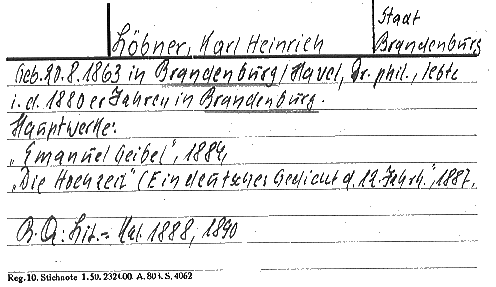 Stadt
Löbner, Karl Heinrich
Brandenburg
Geb. 20.8.1863 in Brandenburg/Havel, Dr. phil., lebte
i. d. 1880er Jahren in Brandenburg.
Hauptwerke:
„Emanuel Geibel", 1884,
„Die Hochzeit" (Ein deutsches Gedicht d. 12. Jahrh.", 1887,
B. Q.: Lit.-Kal. 1888, 1890
Reg. 10. Stichnote 1. 50. 232400. A. 80 t. S. 4062